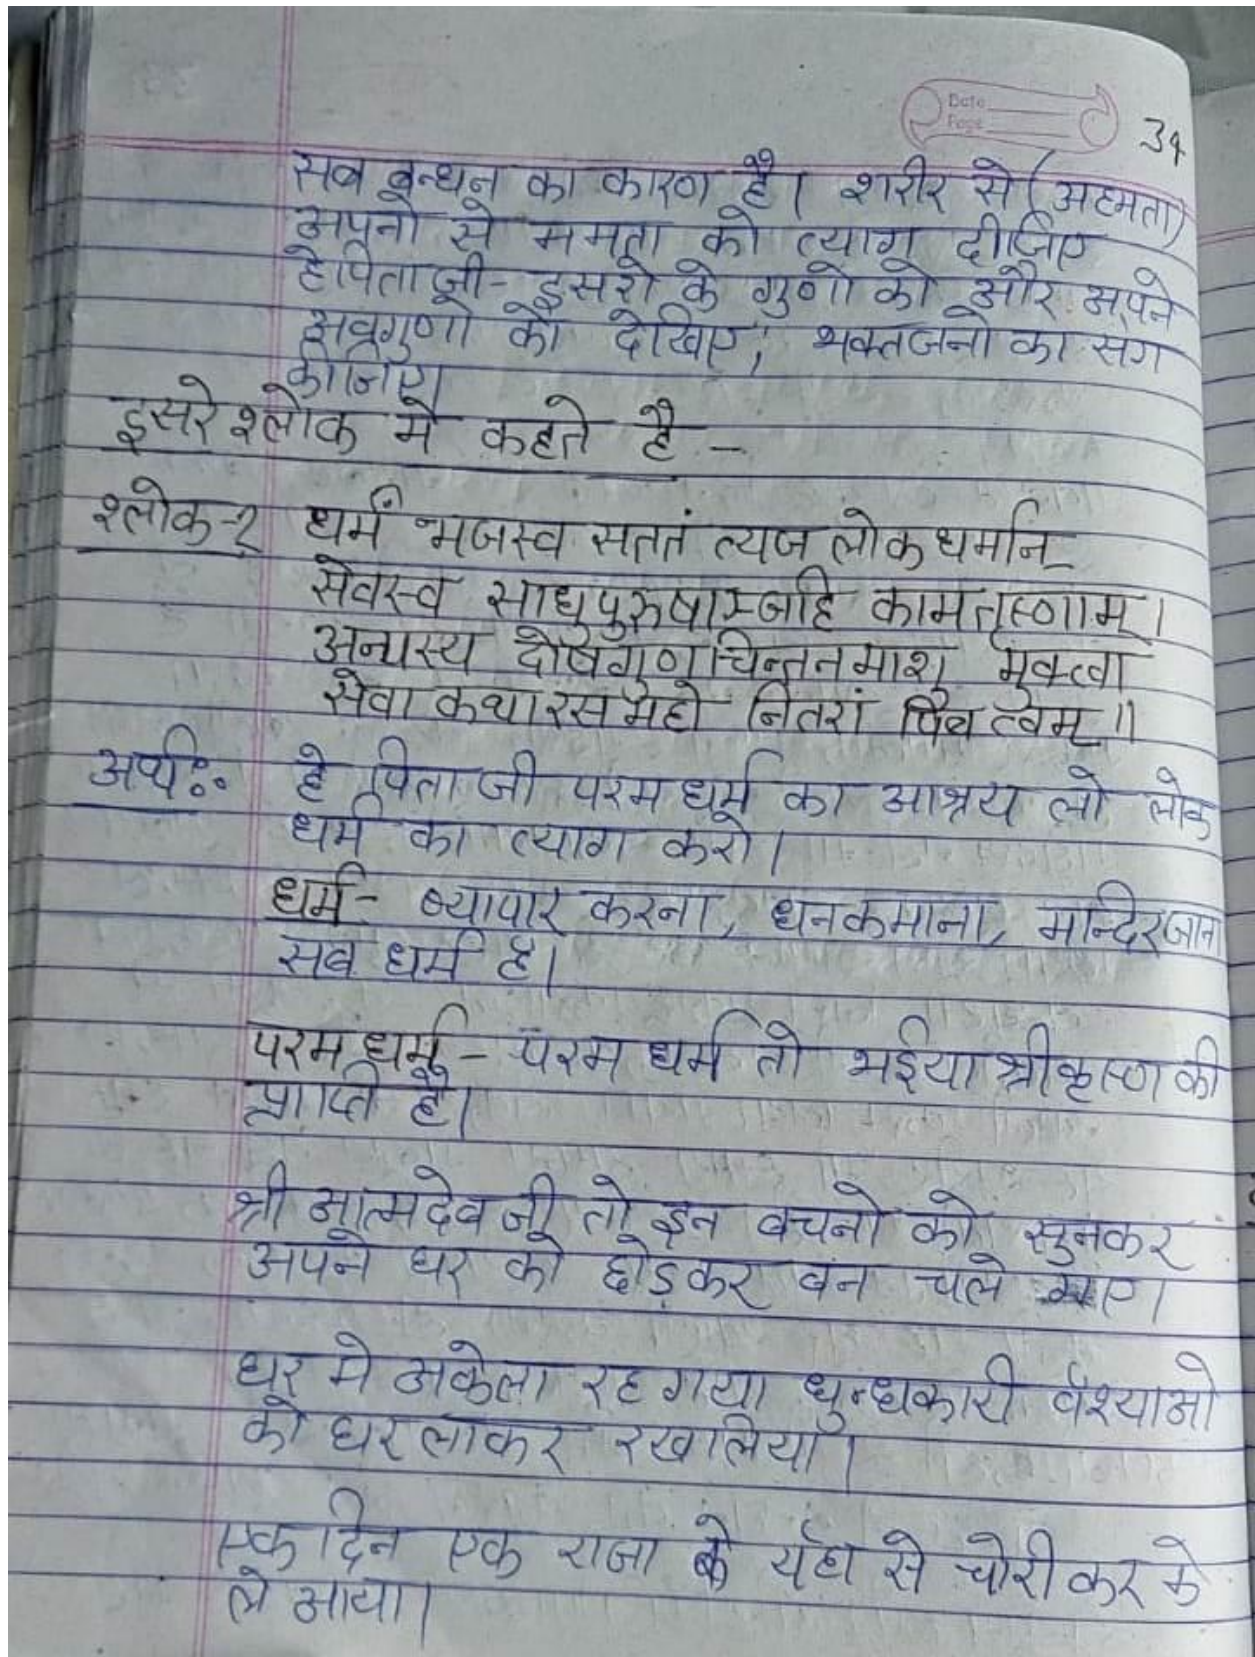 Date
Page
34
सब बन्धन का कारण है। शरीर से (अहमता)
अपनो से ममता को त्याग दीजिए
हे पिता जी - दुसरो के गुणो को और अपने
अवगुणो को देखिए, भक्तजनो का संग
कीजिए।
दुसरे श्लोक मे कहते है -
श्लोक-2 धर्मं भजस्व सततं त्यज लोक धर्मान्
सेवस्व साधुपुरुषाम्जहि कामतृष्णाम्।
अन्यस्य दोषगुणचिन्तनमाशु मुक्त्वा
सेवा कथारसमहो नितरां पिब त्वम्॥
अर्थः हे पिता जी परम धर्म का आश्रय लो लोक
धर्म का त्याग करो।
धर्म - व्यापार करना, धनकमाना, मन्दिरजाना
सब धर्म है।
परम धर्म - परम धर्म तो भईया श्रीकृष्ण की
प्राप्ति है।
श्री आत्मदेव जी तो इन वचनो को सुनकर
अपने घर को छोड़कर वन चले गए।
घर मे अकेला रह गया धुन्धकारी वेश्याओ
को घर लाकर रख लिया।
एक दिन एक राजा के यँहा से चोरी कर के
ले आया।